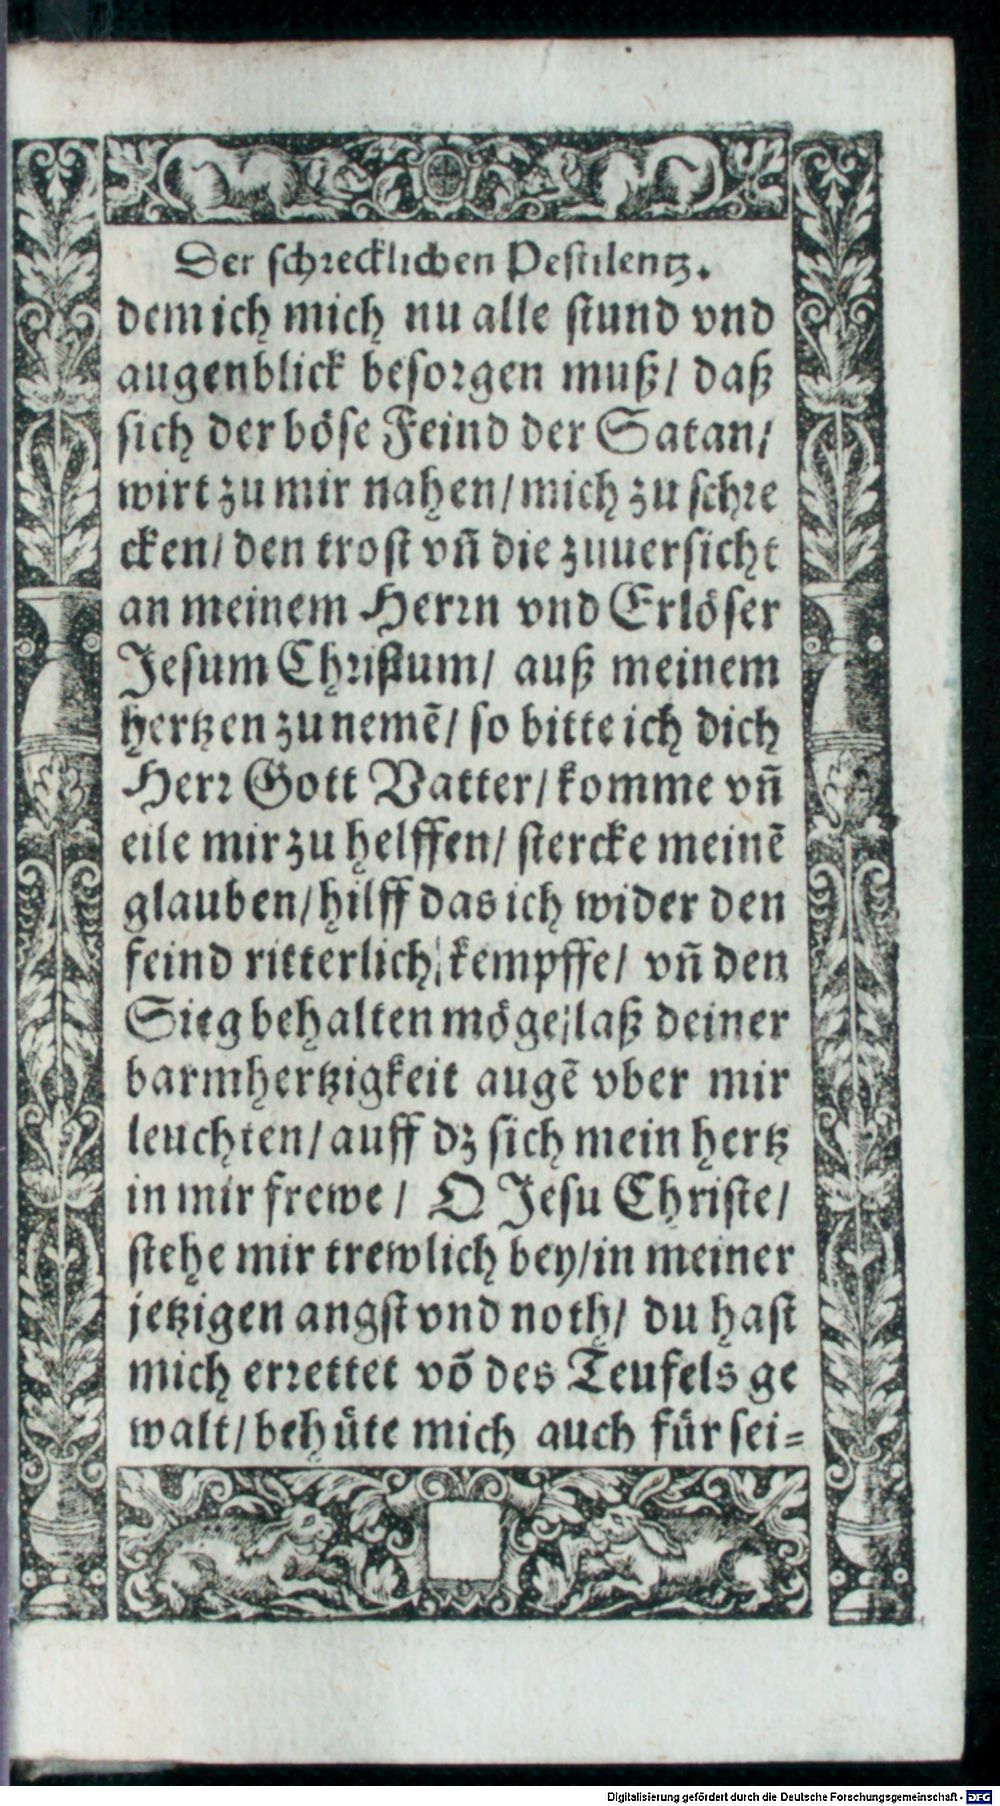 Der schrecklichen Pestilentz.
dem ich mich nu alle stund vnd
augenblick besorgen muß/ daß
sich der böse Feind der Satan/
wirt zu mir nahen/ mich zu schre
cken/ den trost vñ die zuuersicht
an meinem Herrn vnd Erlöser
Jesum Christum/ auß meinem
hertzen zunemẽ/ so bitte ich dich
Herr Gott Vatter/ komme vñ
eile mir zu helffen/ stercke meinẽ
glauben/ hilff das ich wider den
feind ritterlich/ kempffe/ vñ den
Sieg behalten möge/ laß deiner
barmhertzigkeit augẽ vber mir
leuchten/ auff dz sich mein hertz
in mir frewe/ O Jesu Christe/
stehe mir trewlich bey/ in meiner
jetzigen angst vnd noth/ du hast
mich errettet võ des Teufels ge
walt/ behüte mich auch für sei=
Digitalisierung gefördert durch die Deutsche Forschungsgemeinschaft - DFG